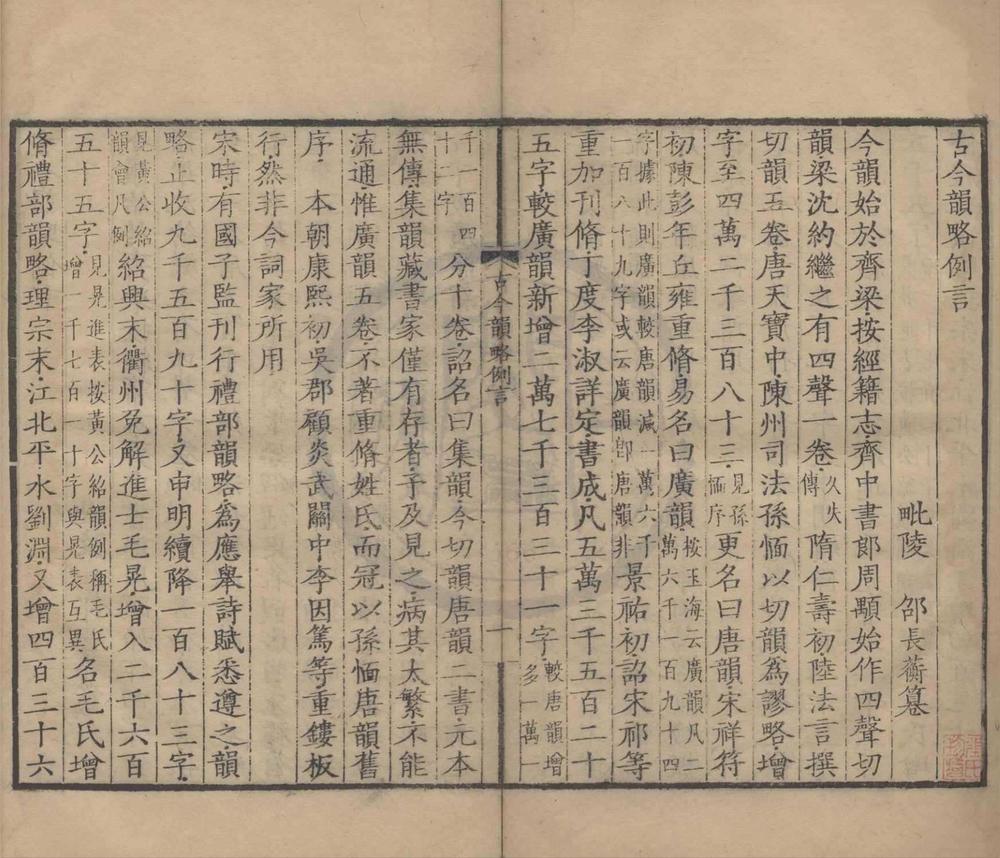 古今韻略例言
毗陵　邵長蘅纂
今韻始於齊梁按經籍志齊中書郎周顒始作四聲切
韻梁沈約繼之有四聲一卷久失傳隋仁壽初陸法言撰
切韻五卷唐天寶中陳州司法孫愐以切韻爲謬略增
字至四萬二千三百八十三見孫愐序更名曰唐韻宋祥符
初陳彭年丘雍重脩易名曰廣韻按玉海云廣韻凡二萬六千一百九十四字據此則廣韻較唐韻減一萬六千
一百八十九字或云廣韻卽唐韻非景祐初詔宋祁等
重加刊脩丁度李淑詳定書成凡五萬三千五百二十
五字較廣韻新增二萬七千三百三十一字較唐韻增多一萬一
千一百四十二字分十卷詔名曰集韻今切韻唐韻二書元本
無傳集韻藏書家僅有存者予及見之病其太繁不能
流通惟廣韻五卷不著重脩姓氏而冠以孫愐唐韻舊
序　本朝康熙初吳郡顧炎武關中李因篤等重鏤板
行然非今詞家所用
宋時有國子監刊行禮部韻略爲應舉詩賦悉遵之韻
略止收九千五百九十字又申明續降一百八十三字
見黃公紹韻會凡例紹興末衢州免解進士毛晃增入二千六百
五十五字見晃進表按黃公紹韻例稱毛氏增一千七百一十字與晃表互異名毛氏增
脩禮部韻略理宗末江北平水劉淵又增四百三十六
古今韻略例言
一